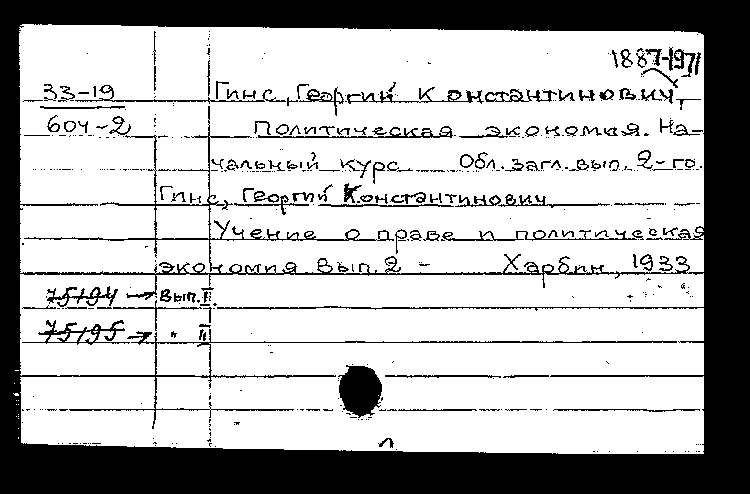 1887-1971
33-19 Гинс, Георгий Константинович,
604-2 Политическая экономия. На-
чальный курс. Обл. загл. вып. 2-го.
Гинс, Георгий Константинович.
Учение о праве и политическая
экономия. Вып. 2 - Харбин, 1933
75194 → Вып. I.
75195 → " II